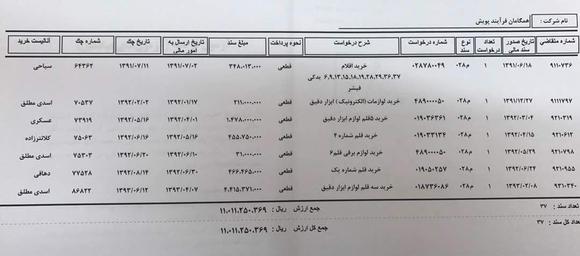 نام شرکت : همگامان فرآیند پویش
شماره متقاضی تاریخ صدور سند مالی تعداد درخواست نوع سند شماره درخواست شرح درخواست نحوه پرداخت مبلغ سند تاریخ ارسال به امور مالی تاریخ چک شماره چک آنالیست خرید
۹۱۱۰۷۳۶ ۱۳۹۱/۰۶/۱۸ ۱ م۰۲۸ ۰۲۸۷۸۰۰۴۹ خرید اقلام ۶،۹،۱۳،۱۵،۱۸،۱۹،۲۸،۲۹،۳۶،۳۷ یدکی فیشر قطعی ۳۴۸،۰۱۳،۰۰۰ ۱۳۹۱/۰۷/۰۲ ۱۳۹۱/۰۷/۱۱ ۶۴۳۶۲ سباحی
۹۱۱۱۷۹۷ ۱۳۹۱/۱۲/۲۷ ۱ م۰۲۸ ۴۸۹۰۰۰۰۵۰ خرید لوازمات (الکترونیک) ابزار دقیق قطعی ۲۱۱،۰۰۰،۰۰۰ ۱۳۹۲/۰۱/۱۷ ۱۳۹۲/۰۲/۰۲ ۷۰۵۳۷ اسدی مطلق
۹۲۱۰۳۱۹ ۱۳۹۲/۰۳/۰۴ ۱ م۰۲۸ ۰۱۹۰۳۶۳۶۱ خرید ۵قلم لوازم ابزار دقیق قطعی ۱،۴۷۸،۰۰۰،۰۰۰ ۱۳۹۲/۰۴/۰۱ ۱۳۹۲/۰۵/۱۶ ۷۳۹۱۹ عسکری
۹۲۱۰۶۱۲ ۱۳۹۲/۰۴/۱۵ ۱ م۰۲۸ ۰۱۹۰۳۳۱۳۴ خرید قلم شماره ۴ قطعی ۴۵۵،۷۵۰،۰۰۰ ۱۳۹۲/۰۵/۱۶ ۱۳۹۲/۰۶/۱۶ ۷۵۰۶۳ کلانترزاده
۹۲۱۰۷۹۸ ۱۳۹۲/۰۵/۲۹ ۱ م۰۲۸ ۴۸۹۰۰۰۰۵۰ خرید لوازم برقی قلم۶ قطعی ۳۱،۰۰۰،۰۰۰ ۱۳۹۲/۰۶/۱۰ ۱۳۹۲/۰۶/۲۰ ۷۵۳۰۳ اسدی مطلق
۹۲۱۰۹۵۵ ۱۳۹۲/۰۶/۲۴ ۱ م۰۲۸ ۰۱۹۰۵۰۲۵۷ خرید قلم شماره یک قطعی ۴۶۶،۴۶۵،۰۰۰ ۱۳۹۲/۰۶/۳۰ ۱۳۹۲/۰۸/۱۴ ۷۷۵۲۸ دهاقی
۹۳۱۰۳۴۰ ۱۳۹۳/۰۲/۰۸ ۱ م۰۲۸ ۰۱۸۷۳۶۰۸۶ خرید سه قلم لوازم ابزار دقیق قطعی ۴،۴۱۵،۳۷۱،۰۰۰ ۱۳۹۳/۰۴/۰۷ ۱۳۹۳/۰۶/۱۲ ۸۶۸۲۲ اسدی مطلق
تعداد سند : ۳۷ جمع ارزش ریال : ۱۱،۰۱۱،۲۵۰،۳۶۹
تعداد کل سند : ۳۷ جمع کل ارزش ریال : ۱۱،۰۱۱،۲۵۰،۳۶۹